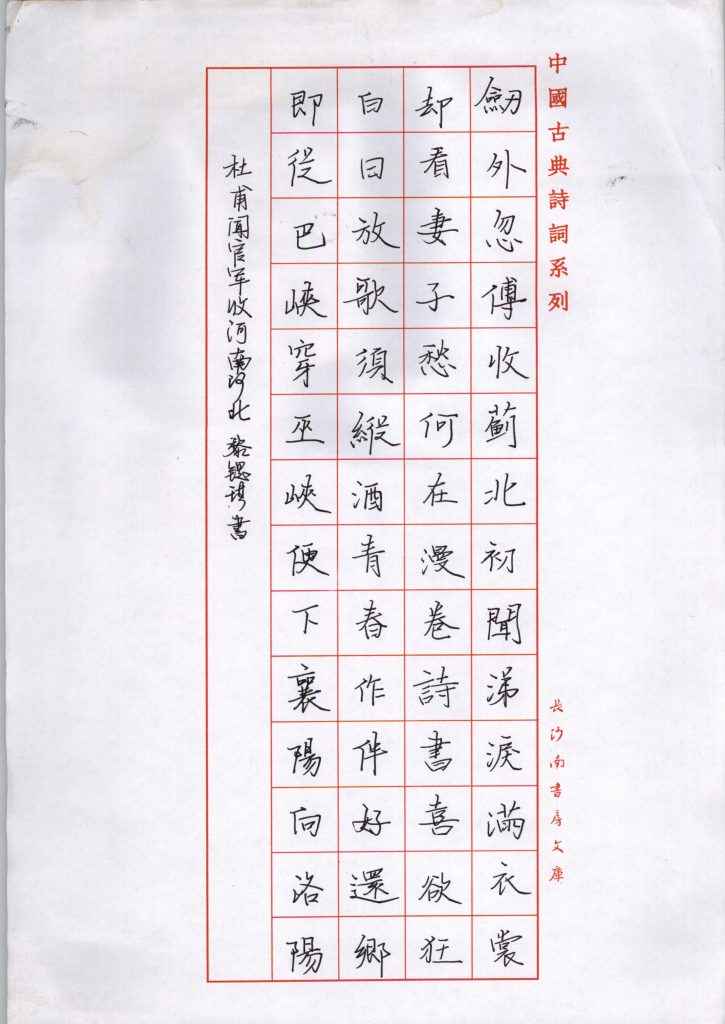 中國古典詩詞系列
长沙南書房文庫
劒外忽傳收薊北初聞涕淚滿衣裳
却看妻子愁何在漫卷詩書喜欲狂
白日放歌須縱酒青春作伴好還鄉
即從巴峽穿巫峽便下襄陽向洛陽
杜甫闻官军收河南河北 黎書